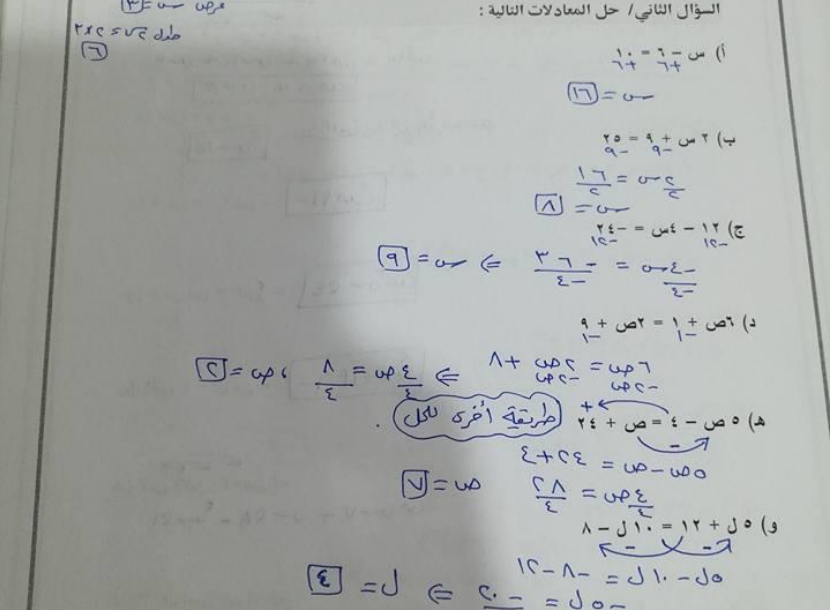 عرض س = ٣
طول ٢س = ٢×٣
٦
السؤال الثاني/ حل المعادلات التالية :
أ) س – ٦ = ١٠
+٦ +٦
س = ١٦
ب) ٢ س + ٩ = ٢٥
–٩ –٩
٢س/٢ = ١٦/٢
س = ٨
ج) ١٢ – ٤س = –٢٤
–١٢ –١٢
–٤س/–٤ = –٣٦/–٤ ⇐ س = ٩
د) ٦ص + ١ = ٢ص + ٩
–١ –١
٦ص = ٢ص + ٨
–٢ص –٢ص
⇐ ٤ص/٤ = ٨/٤ ، ص = ٢
هـ) ٥ ص – ٤ = ص + ٢٤
+ –
طريقة أخرى للحل .
٥ص – ص = ٢٤ + ٤
٤ص/٤ = ٢٨/٤ ص = ٧
و) ٥ ل + ١٢ = ١٠ ل – ٨
– –
٥ل – ١٠ل = –٨ – ١٢
–٥ل = –٢٠ ⇐ ل = ٤